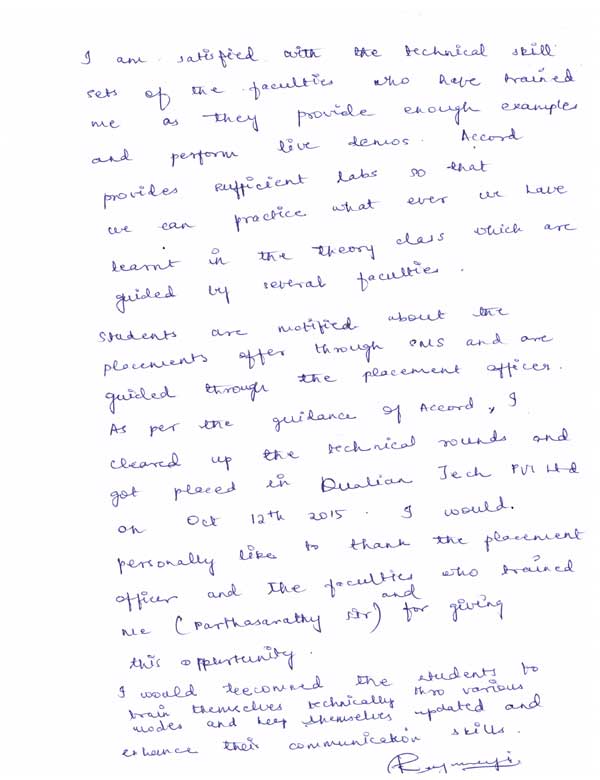 I am satisfied with the technical skill
sets of the faculties who have trained
me as they provide enough examples
and perform live demos. Accord
provides sufficient labs so that
we can practice what ever we have
learnt in the theory class which are
guided by several faculties.
students are notified about the
placements offer through SMS and are
guided through the placement officer.
As per the guidance of Accord, I
cleared up the technical rounds and
got placed in Dualian Tech PVT Ltd
on Oct 12th 2015. I would.
personally like to thank the placement
officer and the faculties who trained
me (Parthasarathy sir) and for giving
this oppurtunity.
I would the students to
train themselves technically thro various
modes and keep themselves updated and
enhance their communication skills.